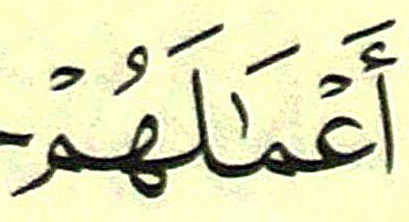 أَعْمَـٰلَهُمْ